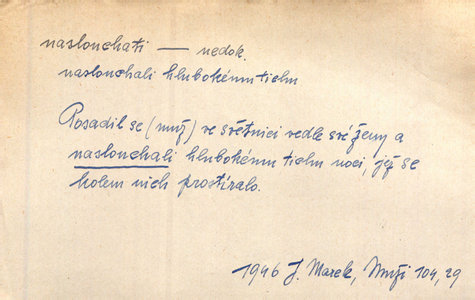 naslouchati — nedok.
naslouchali hlubokému tichu
Posadil se (muž) ve světnici vedle své ženy a
naslouchali hlubokému tichu noci, jež se
kolem nich prostíralo.
1946 J. Marek, Muži 104, 29